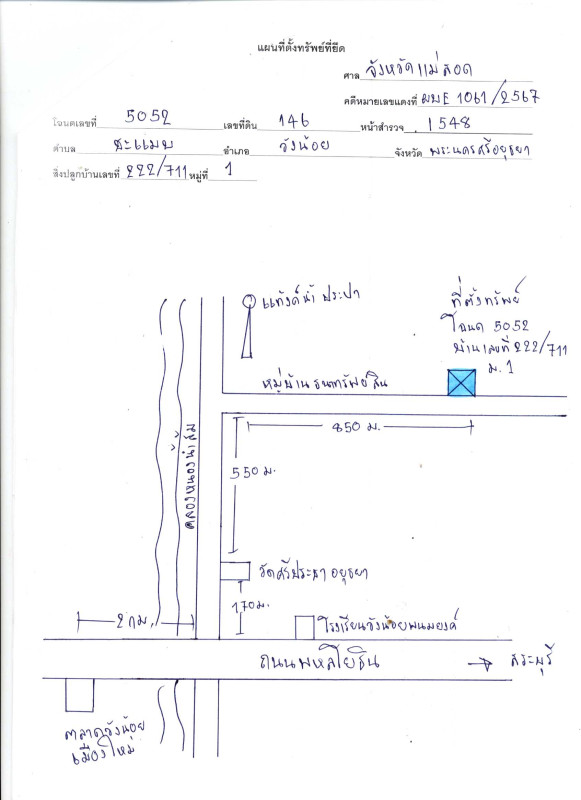 แผนที่ตั้งทรัพย์ที่ยึด
ศาล จังหวัดแม่สอด
คดีหมายเลขแดงที่ ผบE 1061/2567
โฉนดเลขที่ 5052 เลขที่ดิน 146 หน้าสำรวจ 1548
ตำบล ชะแมบ อำเภอ วังน้อย จังหวัด พระนครศรีอยุธยา
สิ่งปลูกบ้านเลขที่ 222/711 หมู่ที่ 1
แท้งค์น้ำ ประปา
ที่ตั้งทรัพย์
โฉนด 5052
บ้านเลขที่ 222/711
ม.1
หมู่บ้าน ธนทรัพย์สิน
850 ม.
คลองหนองน้ำส้ม
550 ม.
วัดศรีประชา อยุธยา
170 ม.
2 กม.
โรงเรียนวังน้อยพนมยงค์
ถนนพหลโยธิน
สระบุรี
ตลาดวังน้อย
เมืองใหม่